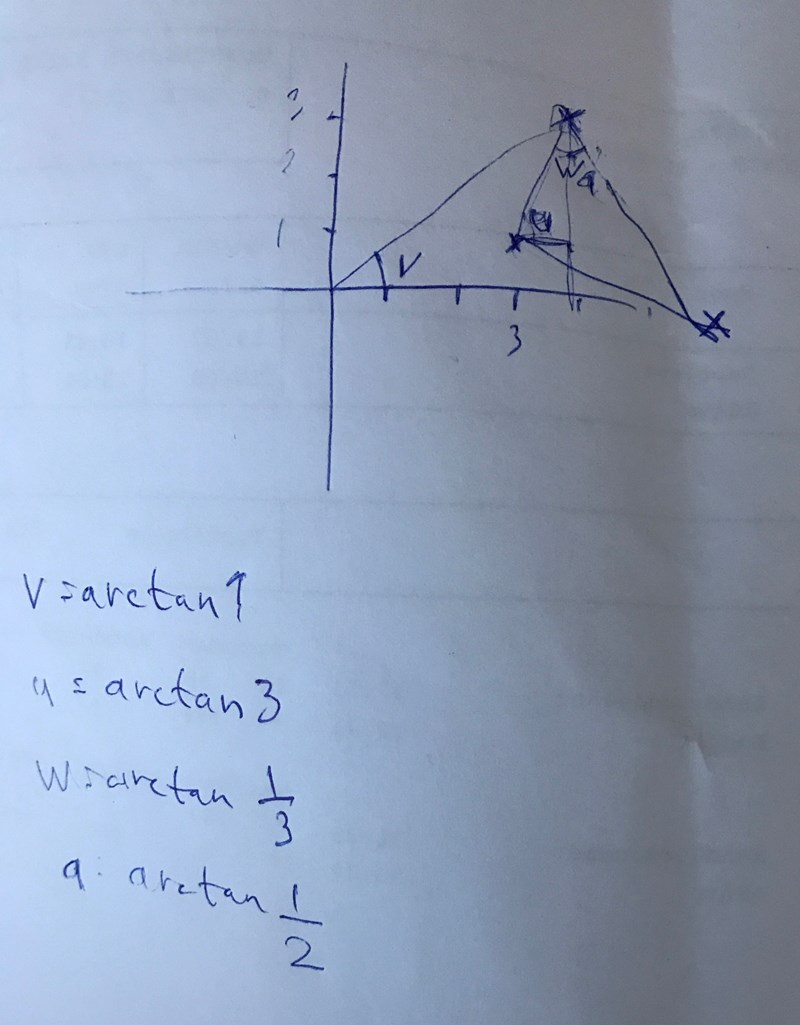 3
2
W a
1
u
V
3
V = arctan 1
u = arctan 3
W = arctan 1/3
a: arctan 1/2